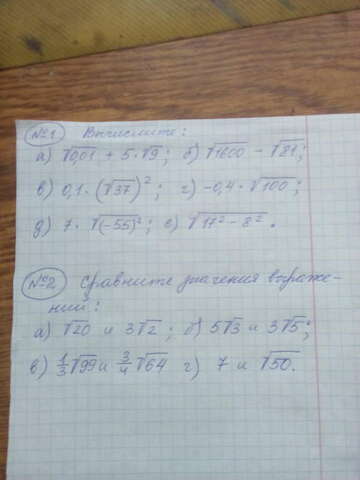 №1. Вычислите:
а) √0,01 + 5·√9; б) √1600 − √81;
в) 0,1·(√37)²; г) −0,4·√100;
д) 7·√(−55)²; е) √17²−8².
№2. Сравните значения выраже-
ний:
а) √20 и 3√2; б) 5√3 и 3√5;
в) 1/3√99 и 3/4√64 г) 7 и √50.